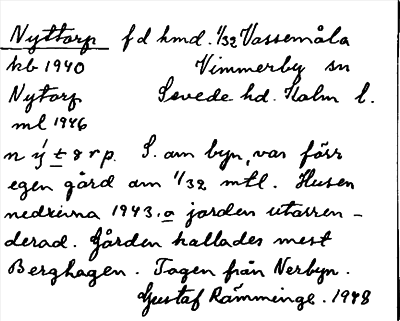 Nyttorp f d hmd. 1/32 Vassemåla
kb 1940 Vimmerby sn
Nytorp Sevede hd. Kalm l.
ml 1946
n ý t o r p. S. om byn, var förr
egen gård om 1/32 mtl. Husen
nedrivna 1943. o jorden utarren-
derad. Gården kallades mest
Berghagen. Tagen från Nerbyn.
Gustaf Rämminge. 1948